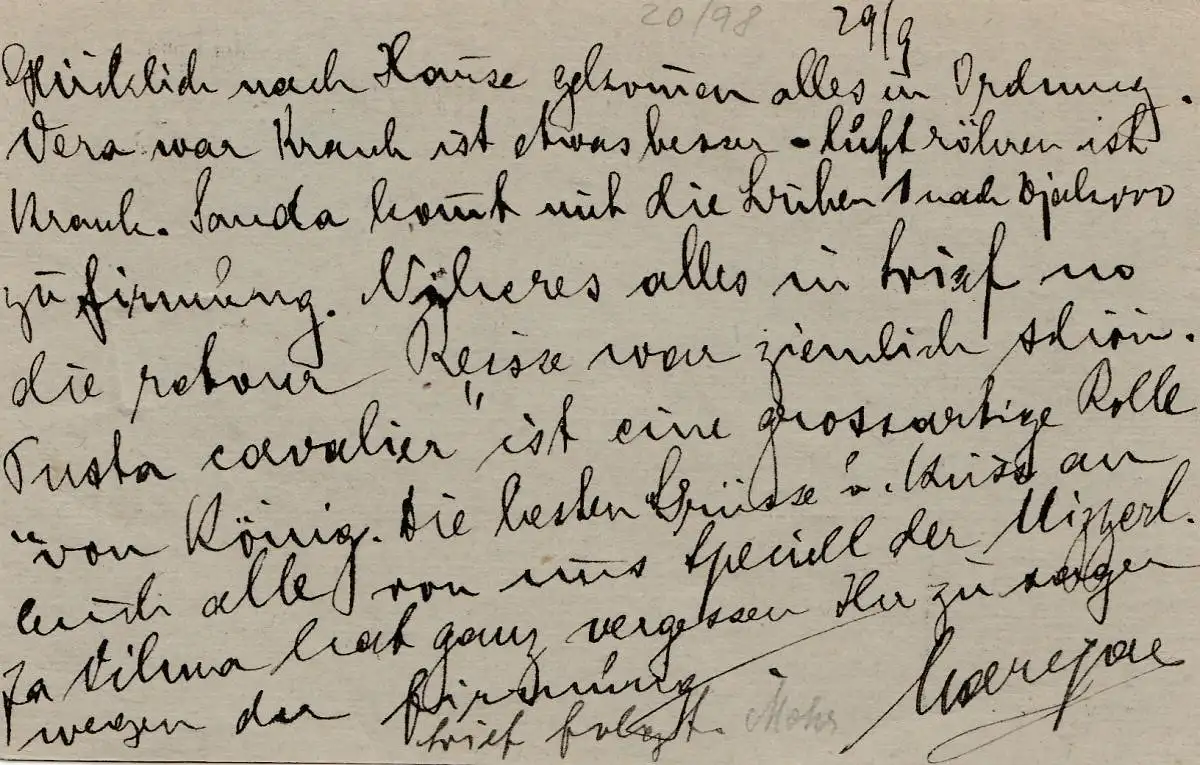 20/98
29/9
Glücklich nach Hause gekom̅en alles in Ordnung.
Vera war Krank ist etwas besser - luftröhren ist
Krank. Sanda kom̅t mit die 1 nach Djakovo
zu firmung. Näheres alles in brief
die retour Reisse war ziemlich schön.
Pusta cavalier" ist eine grossartige Rolle
"von König. Die besten Grüsse u. Küsse an
euch alle von uns speciell der Mizzerl.
Ja Vilma hat ganz vergessen Ihr zu sagen
wegen der firmung
brief folgt. Mohr